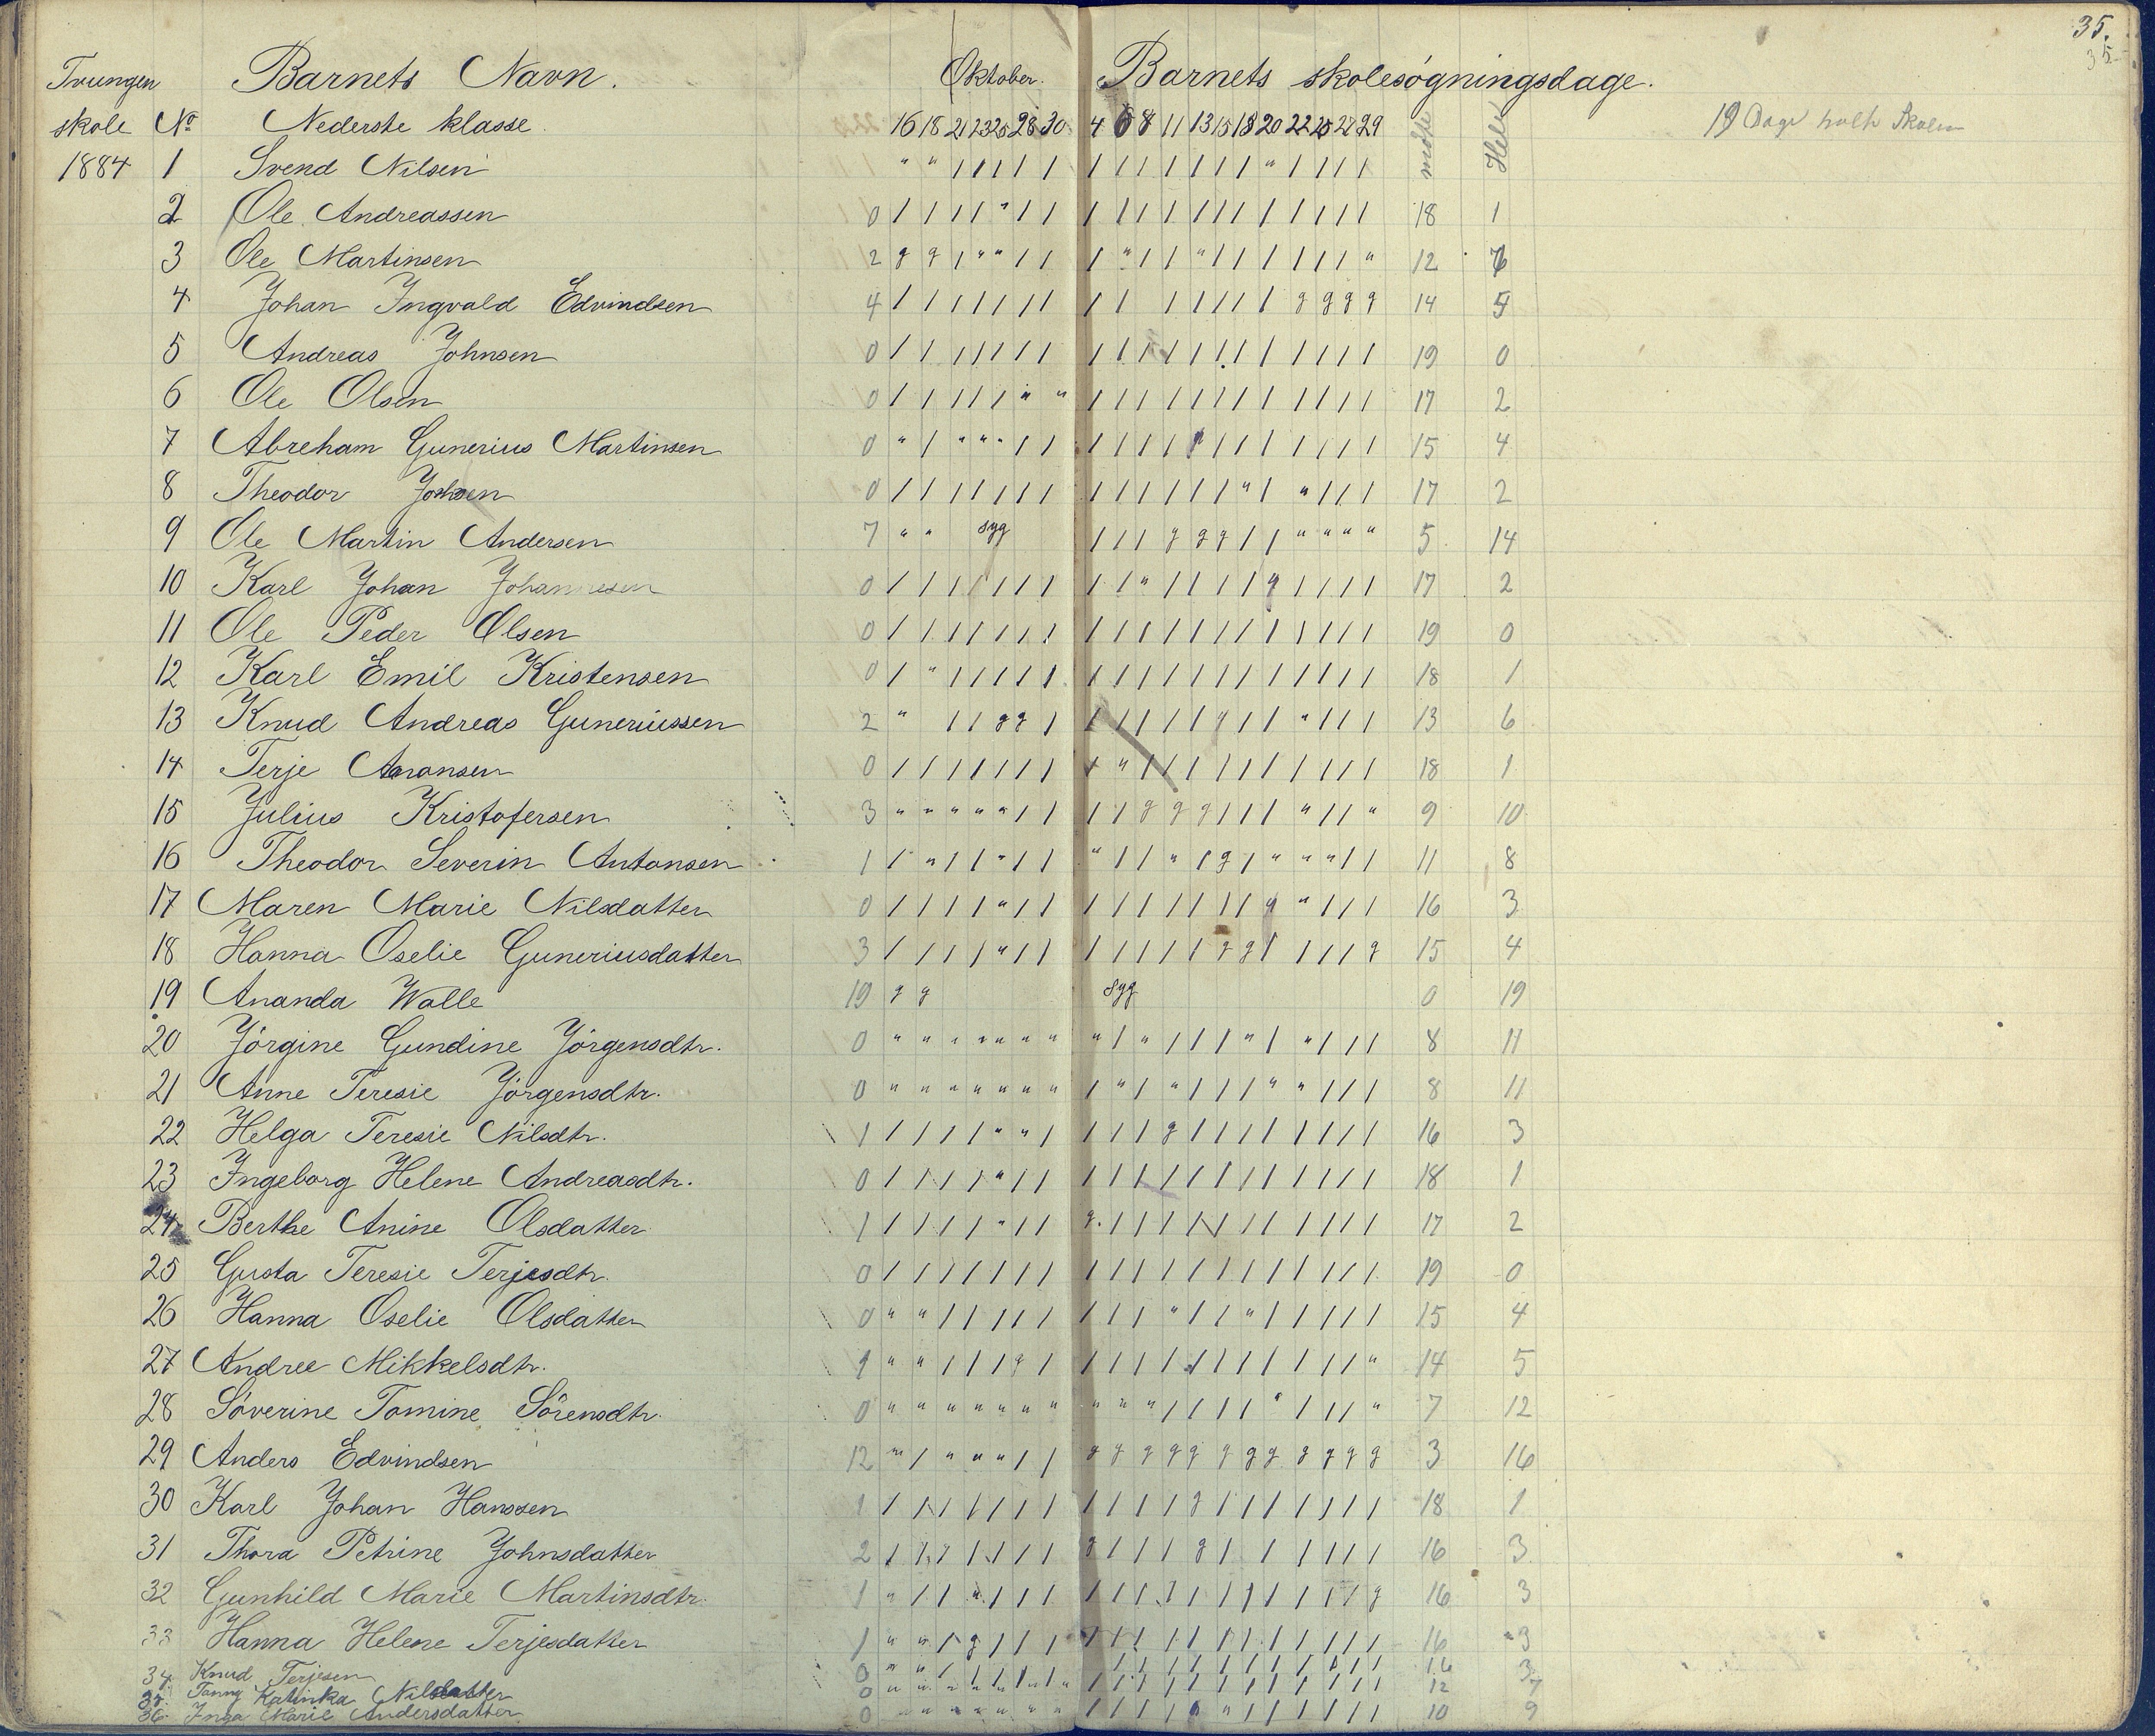 35.
35
Tvungen Barnets Navn. Oktober. Barnets skolesøgningsdage.
skole No Nederste klasse. 16 18 21 23 25 28 30 4 6 8 11 13 15 18 20 22 25 27 29 mødte Hele 19 Dage holdt Skolen
1884 1 Svend Nilsen " " / / / / / / / / / / / / / " / / / /
2 Ole Andreassen 0 / / / / " / / / / / / / / / / / / / / 18 1
3 Ole Martinsen 2 g g / " " / / / " / / " / / / / / / " 12 7
4 Johan Ingvald Edvindsen 4 / / / / / / / / / / / / / / g g g g 14 5
5 Andreas Johnsen 0 / / / / / / / / / / / / / / / / / / / 19 0
6 Ole Olsen 0 / / / / / " " / / / / / / / / / / / / 17 2
7 Abreham Gunerius Martinsen 0 " / " " " / / / / / / / / / / / / / / 15 4
8 Theodor Johsen 0 / / / / / / / / / / / / / " / " / / / 17 2
9 Ole Martin Andersen 7 " " syg / / / g g g / / " " " " 5 14
10 Karl Johan Johannesen 0 / / / / / / / / / " / / / / g / / / / 17 2
11 Ole Peder Olsen 0 / / / / / / / / / / / / / / / / / / / 19 0
12 Karl Emil Kristensen 0 / " / / / / / / / / / / / / / / / / / 18 1
13 Knud Andreas Guneriussen 2 " / / g g / / / / / / g / / " / / / 13 6
14 Terje Aaronsen 0 / / / / / / / / " / / / / / / / / / / 18 1
15 Julius Kristofersen 3 " " " " " / / / / g g g / / / " / / " 9 10
16 Theodor Severin Antonsen 1 / " / / " / / " / / " / g / " " " / / 11 8
17 Maren Marie Nilsdatter 0 / / / / " / / / / / / / / / g " / / / 16 3
18 Hanna Oselie Guneriusdatter 3 / / / / " / / / / / / / g g / / / / g 15 4
19 Ananda Walle 19 g g syg 0 19
20 Jörgine Gundine Jörgensdtr. 0 " " " " " " " " / " / / / " / " / / / 8 11
21 Anne Teresie Jörgensdtr. 0 " " " " " " " / " / " / / / " " / / / 8 11
22 Helga Teresie Nilsdtr. 1 / / / / " " / / / / g / / / / / / / / 16 3
23 Ingeborg Helene Andreasdtr. 0 / / / / " / / / / / / / / / / / / / / 18 1
24 Berthe Anine Olsdatter 1 / / / / " / / g. / / / / / / / / / / / 17 2
25 Gusta Teresie Terjesdtr. 0 / / / / / / / / / / / / / / / / / / / 19 0
26 Hanna Oselie Olsdatter 0 " " / / / / / / / / " / / " / / / / / 15 4
27 Andree Mikkelsdtr. 1 " " / / / g / / / / / / / / / / / / " 14 5
28 Söverine Tomine Sörensdtr. 0 " " " " " " " " " " / / / / " / / / " 7 12
29 Anders Edvindsen 12 " / " " " / / g g g g g g g g g g g g 3 16
30 Karl Johan Hanssen 1 / / / / / / / / / / / g / / / / / / / 18 1
31 Thora Petrine Johnsdatter 2 / / / / / / / g / / / g / / / / / / / 16 3
32 Gunhild Marie Martinsdtr. 1 " / / " / / / / / / / / / / / / / / g 16 3
33 Hanna Helene Terjesdatter 1 " " / g / / / / / / / / / / / / / / / 16 3
34 Knud Terjesen 0 " " / / / / / / / / / / / / / / / / 16 3
35 Fanny Katinka Nilsdatter 0 " " " " " " " / / / / / / / / / / / / 12 7
36 Inga Marie Andersdatter 0 " " " " " " " / / / / " " / / / / / / 10 9